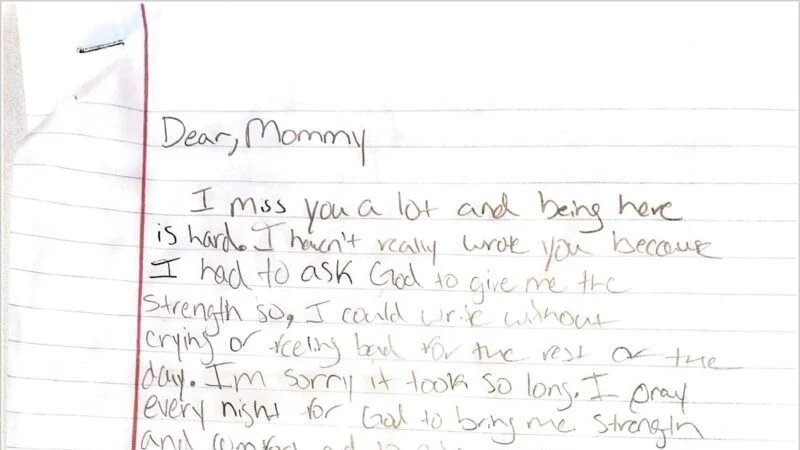 Dear, Mommy
I miss you a lot and being here
is hard. I haven't really wrote you because
I had to ask God to give me the
strength so, I could write without
crying or feeling bad for the rest of the
day. I'm sorry it took so long. I pray
every night for God to bring me strength
and comfort